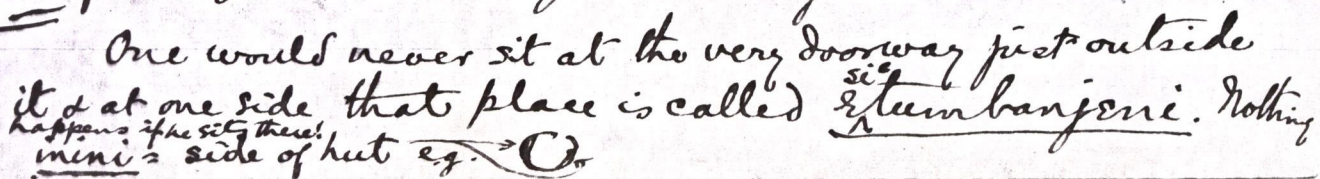 One would never sit at the very doorway just outside
it & at one side that place is called
sic
tumbanjeni. Nothing
happens if he sits there!
mini = side of hut e.g.